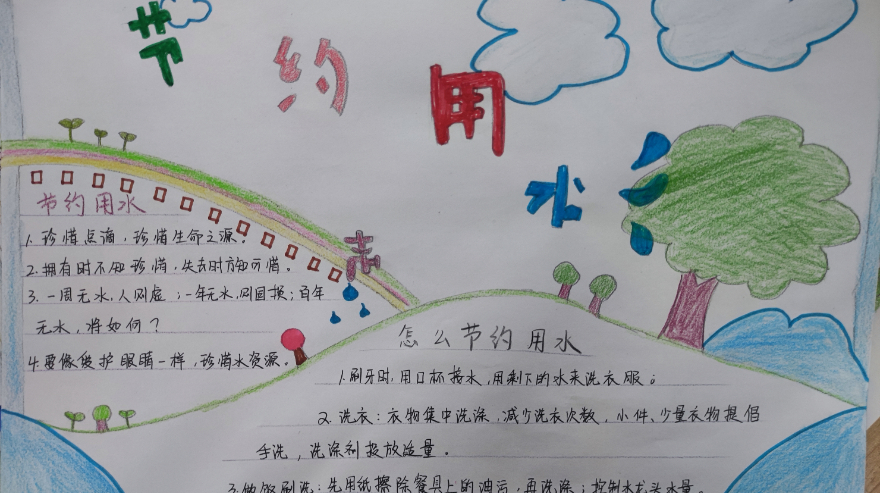 节约用水
节约用水
1.珍惜点滴，珍惜生命之源。
2.拥有时不知珍惜，失去时方知可惜。
3.一周无水，人则虚；一年无水，则国损；百年
无水，将如何？
4.要像爱护眼睛一样，珍惜水资源。
怎么节约用水
1.刷牙时，用口杯接水，用剩下的水来洗衣服。
2.洗衣：衣物集中洗涤，减少洗衣次数，小件、少量衣物提倡
手洗，洗涤剂投放适量。
3.做饭刷洗：先用纸擦除餐具上的油污，再洗涤；控制水龙头水量。